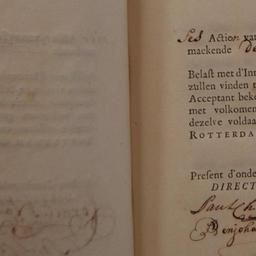 Ses Action van
mackende de
Belast met d'In
zullen vinden t
Acceptant beke
met volkomen
dezelve voldaa
ROTTERDA
Present d'onde
DIRECT
Paul Ch
Benjoha